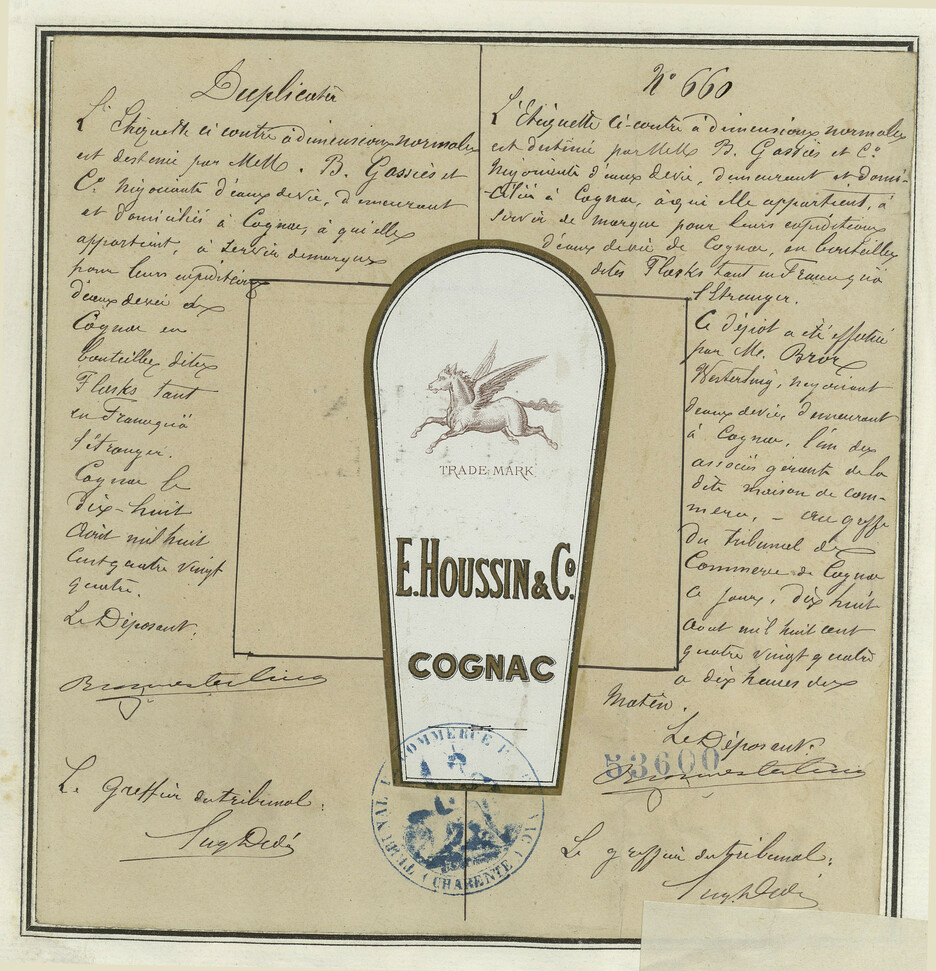 Duplicata
L'Etiquette ci contre à dimensions normales
est destinée par MM. B. Gassies et
Cº négociants d'eaux devie, demeurant
et domiciliés à Cognac, à qui elle
appartient, à servir de marque
pour leurs expéditions
d'eaux devie de
Cognac en
bouteilles dites
Flasks tant
en France qu'à
l'étranger.
Cognac le
dix-huit
Août mil huit
cent quatre vingt
quatre.
Le Déposant:
Le greffier du tribunal:
Nº 660
L'Etiquette ci-contre à dimensions normales
est destinée par MM B. Gassies et Cº
négociants d'eaux devie, demeurant et domi-
-ciliés à Cognac, à qui elle appartient, à
servir de marque pour leurs expéditions
d'eaux devie de Cognac, en bouteilles
dites Flasks tant en France qu'à
l'Etranger.
Ce dépôt a été effectué
par Mr. Bror
négociant
d'eaux devie, demeurant
à Cognac, l'un des
associés gérants de la
dite maison de com-
merce, - au greffe
du tribunal de
Commerce de Cognac
ce jour, dix huit
Août mil huit cent
quatre vingt quatre
à dix heures du
Matin.
Le Déposant:
53600
Le greffier du tribunal:
TRADE MARK
E. HOUSSIN & Cº.
COGNAC
COMMERCE
TRIBUNAL
(CHARENTE)